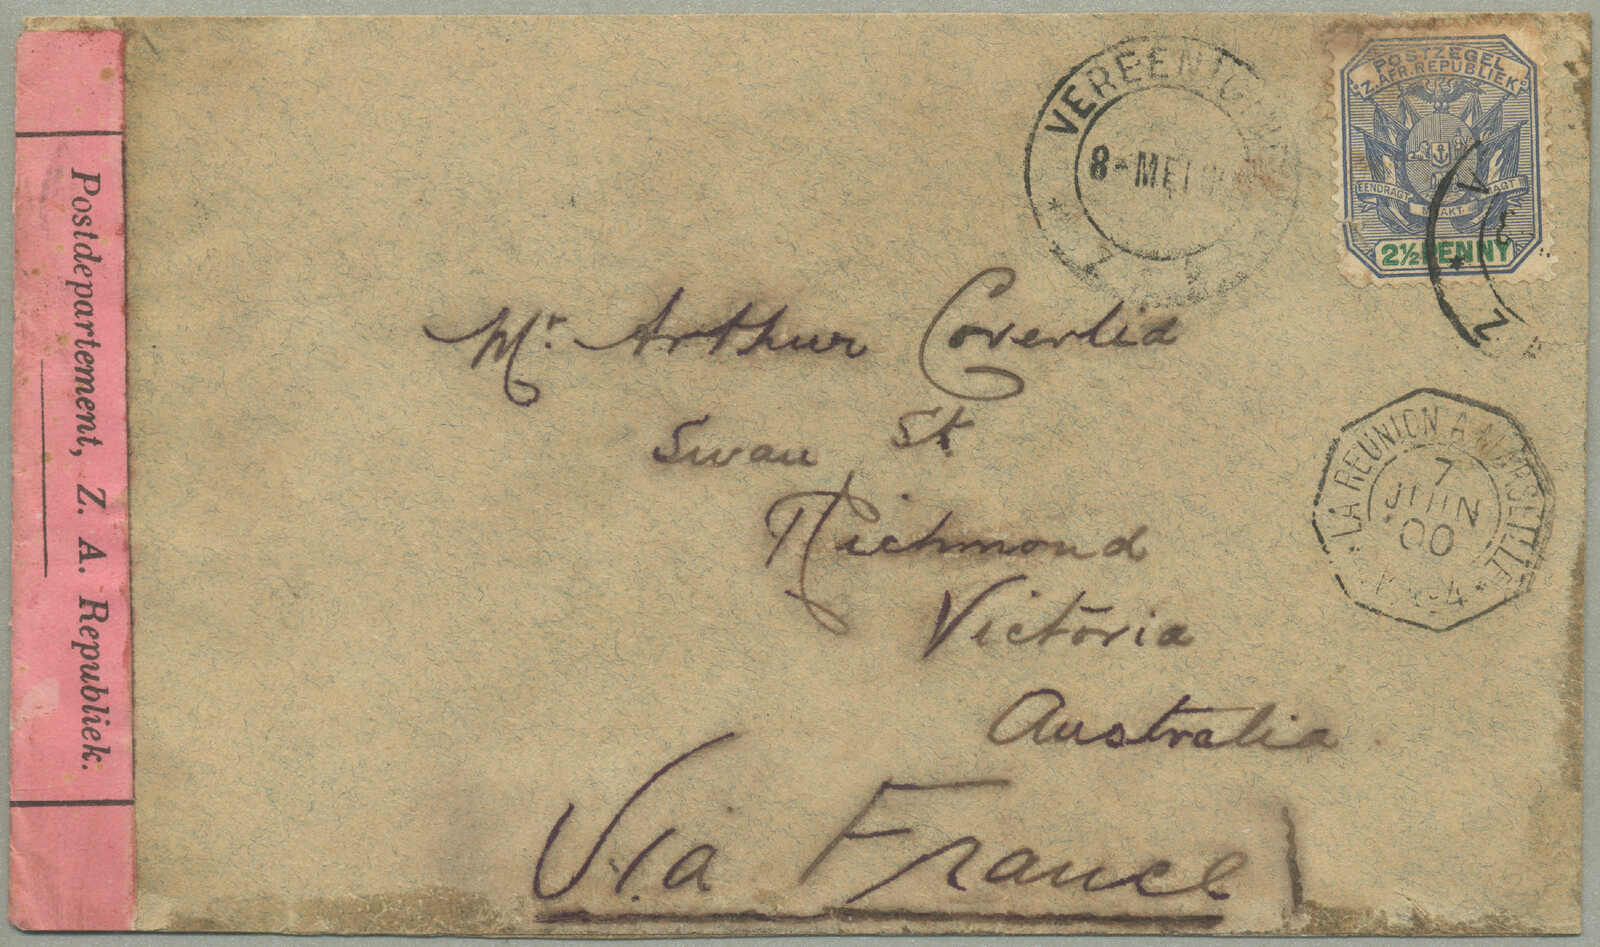 Postdepartement, Z. A. Republiek.
VEREENIGING
8-MEI
Z.
POSTZEGEL
Z. AFR. REPUBLIEK
EENDRAGT MAAKT MAGT
2½ PENNY
V
Z
Mr. Arthur Coverlid
Swan St.
Richmond
Victoria
Australia
Via France
LA REUNION A MARSEILLE
7
JUIN
00